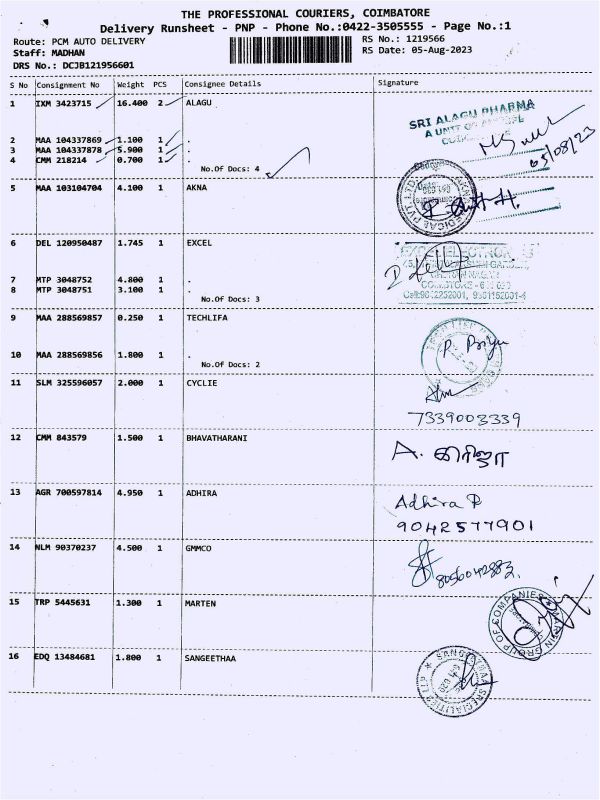 THE PROFESSIONAL COURIERS, COIMBATORE
Delivery Runsheet - PNP - Phone No.:0422-3505555 - Page No.:1
Route: PCM AUTO DELIVERY RS No.: 1219566
Staff: MADHAN RS Date: 05-Aug-2023
DRS No.: DCJB121956601
S No Consignment No Weight PCS Consignee Details Signature
1 IXM 3423715 16.400 2 ALAGU
SRI ALAGU PHARMA
A UNIT OF
2 MAA 104337869 1.100 1 .
3 MAA 104337878 5.900 1 .
4 CMM 218214 0.700 1 .
05/08/23
No.Of Docs: 4
5 MAA 103104704 4.100 1 AKNA
6 DEL 120950487 1.745 1 EXCEL
7 MTP 3048752 4.800 1 .
8 MTP 3048751 3.100 1 .
No.Of Docs: 3
9 MAA 288569857 0.250 1 TECHLIFA
P. Priya
10 MAA 288569856 1.800 1 .
No.Of Docs: 2
11 SLM 325596057 2.000 1 CYCLIE
7339003339
12 CMM 843579 1.500 1 BHAVATHARANI
A. கிரிஜா
13 AGR 700597814 4.950 1 ADHIRA
Adhira P
9042577901
14 NLM 90370237 4.500 1 GMMCO
8056042883.
15 TRP 5445631 1.300 1 MARTEN
GROUP OF COMPANIES
16 EDQ 13484681 1.800 1 SANGEETHAA